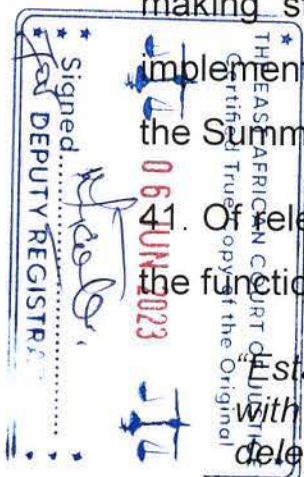 making s
implement
the Summ
41. Of rele
the functio
“Esta
with
dele
THE EAST AFRICAN COURT OF JUSTICE
Certified True Copy of the Original
06 JUN 2023
Signed
For DEPUTY REGISTRA